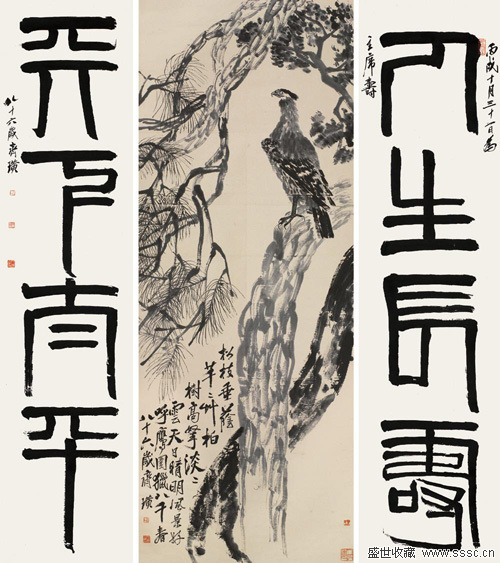 丙戌十月三十一日為
主席壽
人生長壽
松枝垂蔭
芊〻艸柏
樹高擎淡〻
雲天日晴明風景好
呼鷹圍獵八千春
八十六歲齊璜
天下太平
八十六歲齊璜
盛世收藏 www.sssc.cn